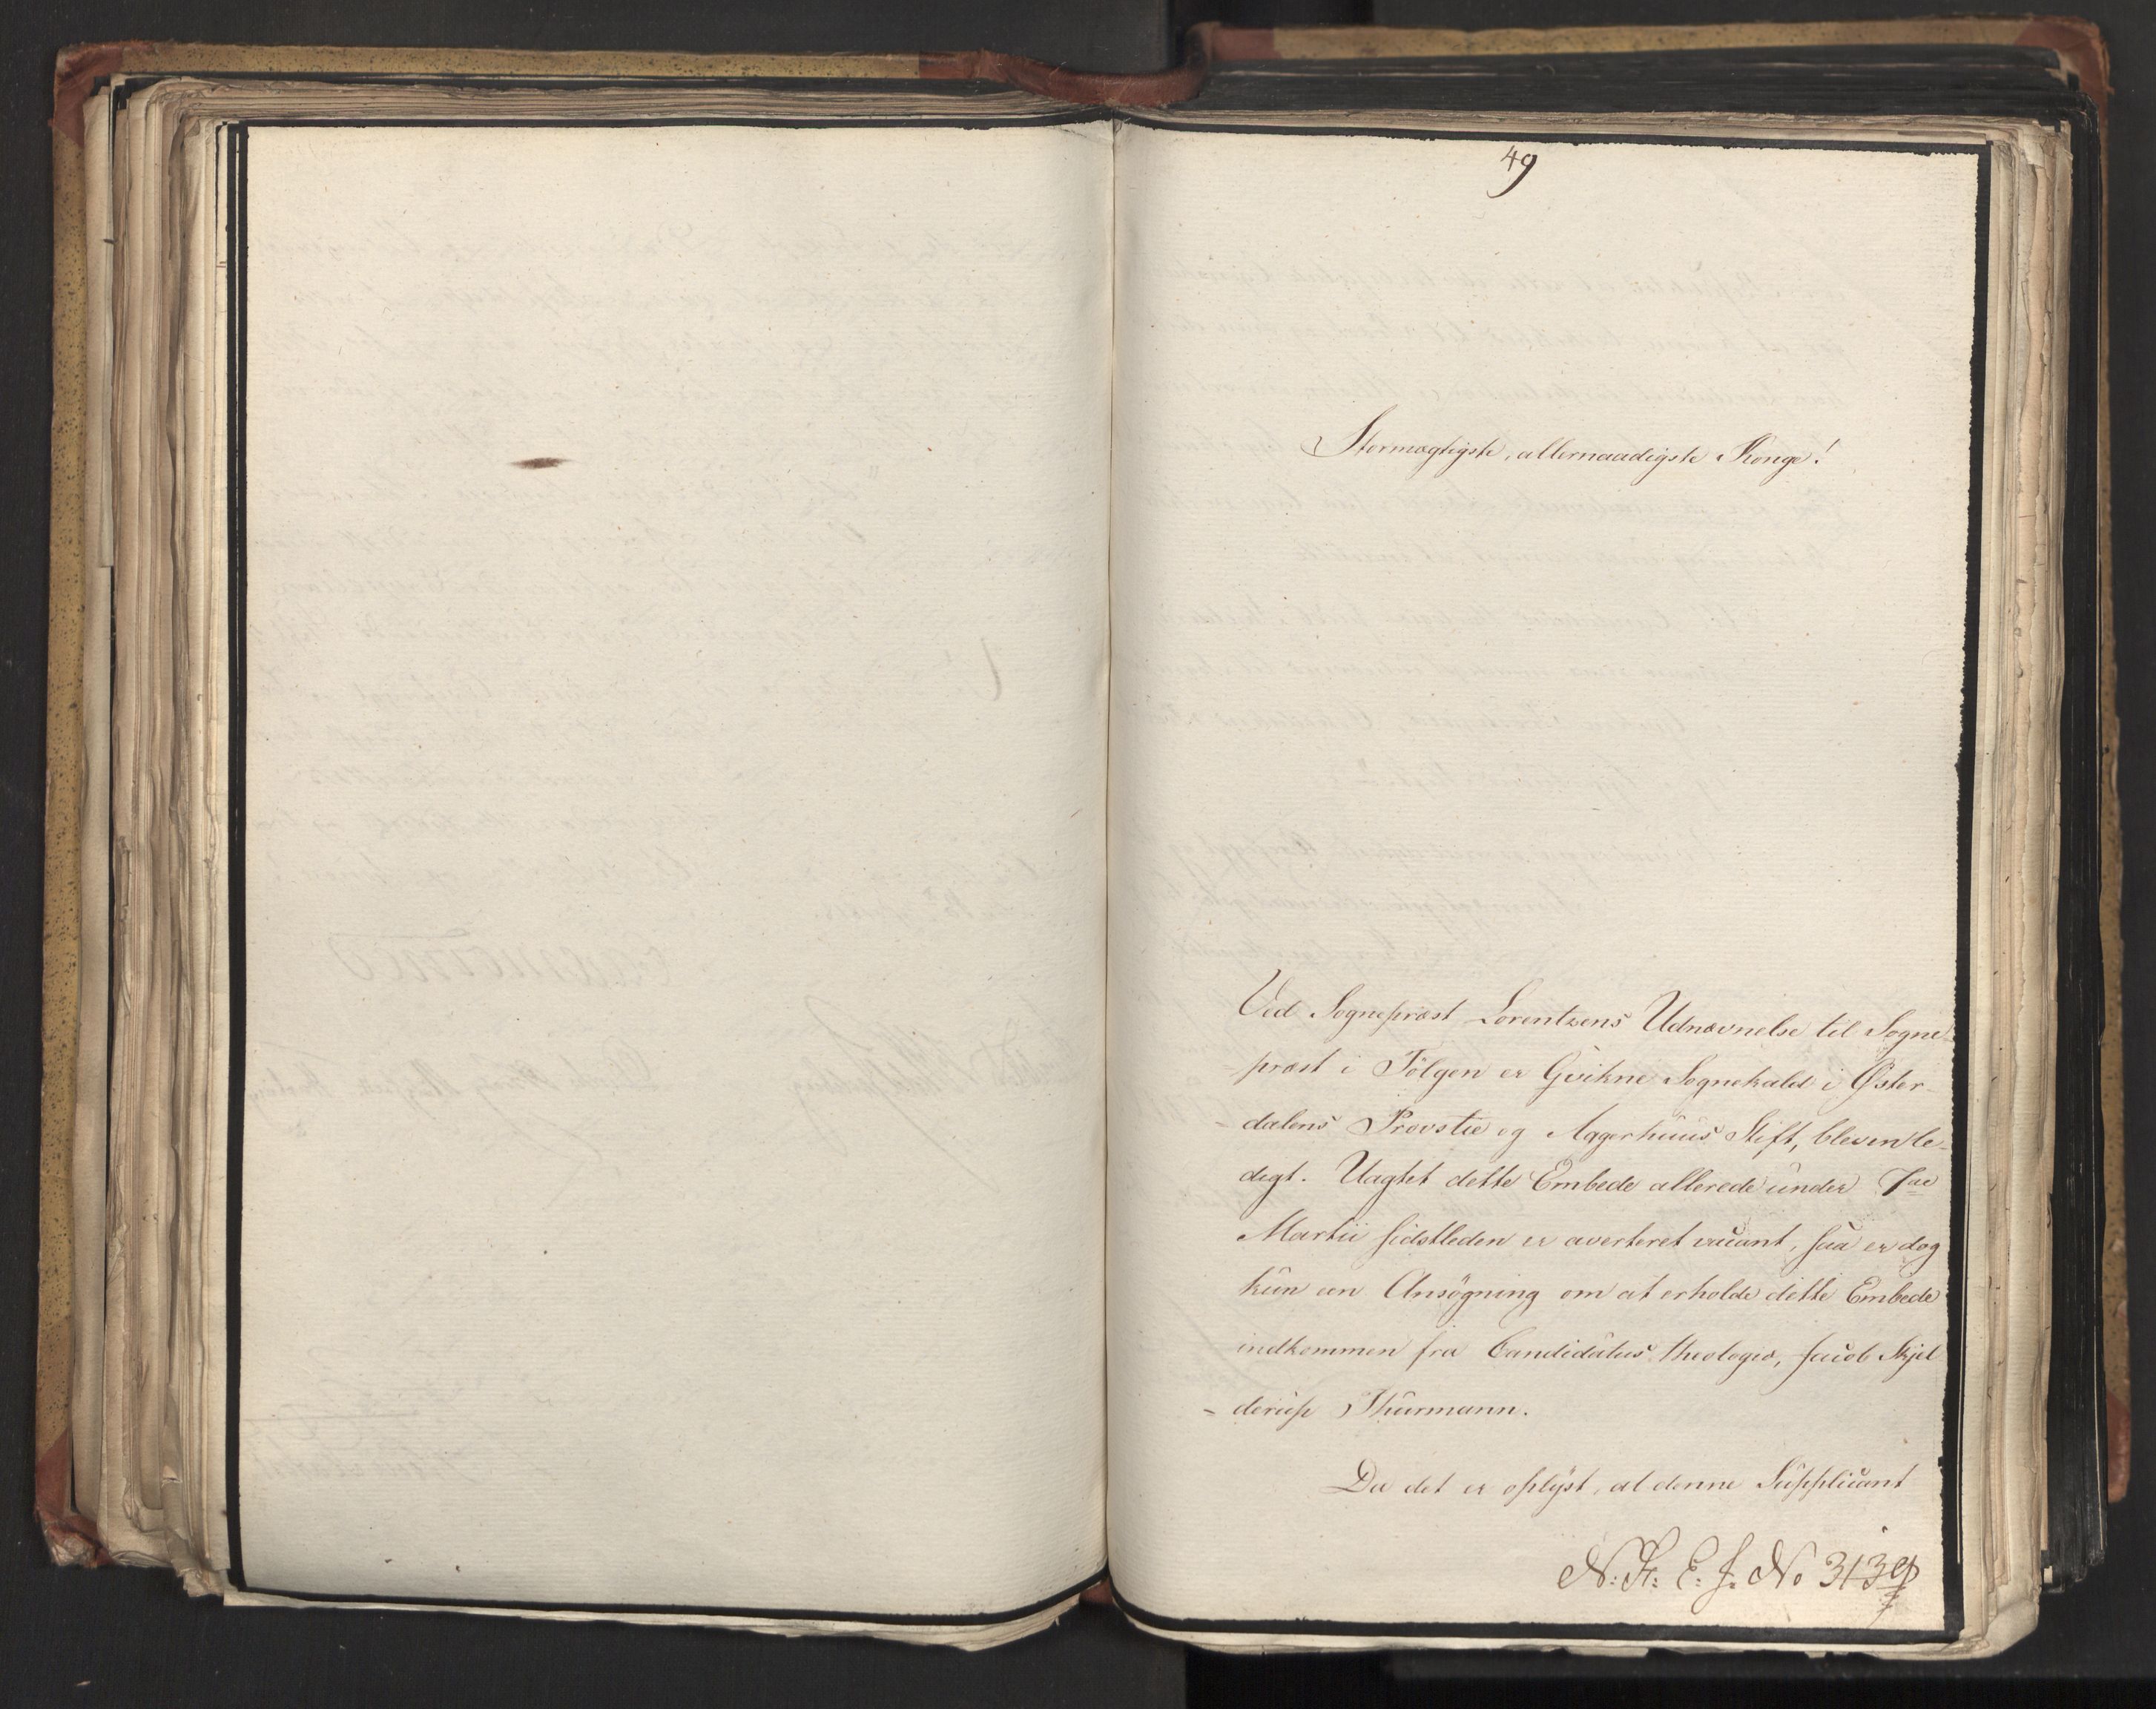 49
Stormægtigste, allernaadigste Konge!
Ved Sognepræst Lorentzens Udnævnelse til Sogne-
præst i Tölgen er Qvikne Sognekald i Øster-
dalens Provstie og Aggerhuus Stift, bleven le-
digt. Uagtet dette Embede allerede under 7de
Martii sidstleden er averteret vacant, saa er dog
kun een Ansögning om at erholde dette Embede
indkommen fra Candidatus theologiæ, Jacob Skjel
-derup Thurmann.
Da det er oplyst, at denne Supplicant
N: K: E: J: No 3139